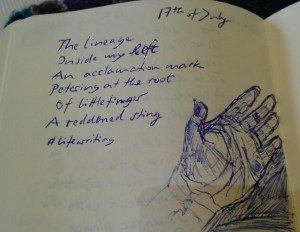 17th of July
The lineage
Inside my left
An acclamation mark
Petering at the root
Of little finger
A reddened sting
#lifewriting